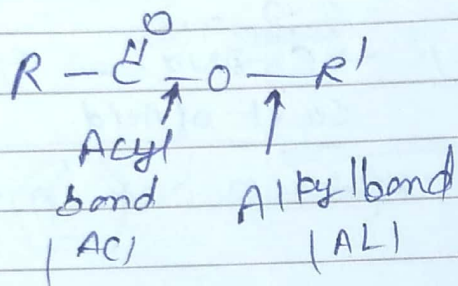 O
R – C – O – R'
Acyl
bond
(AC)
Alkyl bond
(AL)